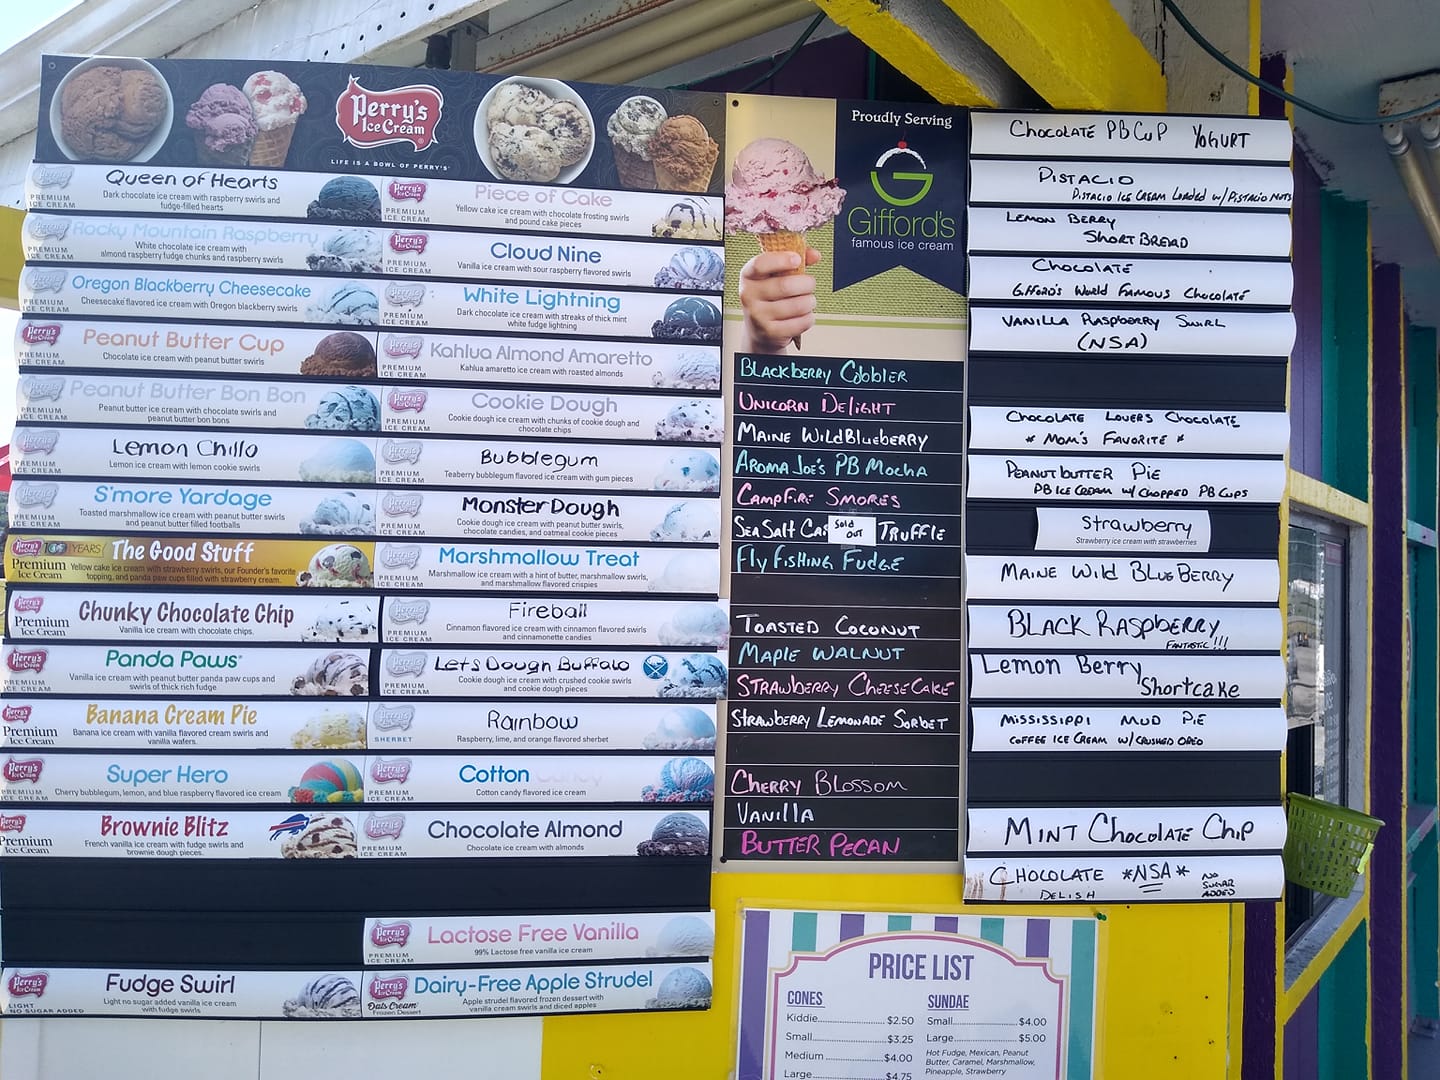 Perry's
Ice Cream
LIFE IS A BOWL OF PERRY'S
Queen of Hearts
Dark chocolate ice cream with raspberry swirls and
fudge-filled hearts
PREMIUM
ICE CREAM
Rocky Mountain Raspberry
White chocolate ice cream with
almond raspberry fudge chunks and raspberry swirls
PREMIUM
ICE CREAM
Oregon Blackberry Cheesecake
Cheesecake flavored ice cream with Oregon blackberry swirls
PREMIUM
ICE CREAM
Peanut Butter Cup
Chocolate ice cream with peanut butter swirls
PREMIUM
ICE CREAM
Peanut Butter Bon Bon
Peanut butter ice cream with chocolate swirls and
peanut butter bon bons
PREMIUM
ICE CREAM
Lemon Chillo
Lemon ice cream with lemon cookie swirls
PREMIUM
ICE CREAM
S'more Yardage
Toasted marshmallow ice cream with peanut butter swirls
and peanut butter filled footballs
PREMIUM
ICE CREAM
100 YEARS
The Good Stuff
Yellow cake ice cream with strawberry swirls, our Founder's favorite
topping, and panda paw cups filled with strawberry cream.
Premium
Ice Cream
Chunky Chocolate Chip
Vanilla ice cream with chocolate chips.
Premium
Ice Cream
Panda Paws
Vanilla ice cream with peanut butter panda paw cups and
swirls of thick rich fudge
PREMIUM
ICE CREAM
Banana Cream Pie
Banana ice cream with vanilla flavored cream swirls and
vanilla wafers.
Premium
Ice Cream
Super Hero
Cherry bubblegum, lemon, and blue raspberry flavored ice cream
PREMIUM
ICE CREAM
Brownie Blitz
French vanilla ice cream with fudge swirls and
brownie dough pieces.
Premium
Ice Cream
Fudge Swirl
Light no sugar added vanilla ice cream
with fudge swirls
LIGHT
NO SUGAR ADDED
Perry's
Ice Cream
Piece of Cake
Yellow cake ice cream with chocolate frosting swirls
and pound cake pieces
PREMIUM
ICE CREAM
Cloud Nine
Vanilla ice cream with sour raspberry flavored swirls
PREMIUM
ICE CREAM
White Lightning
Dark chocolate ice cream with streaks of thick mint
white fudge lightning
PREMIUM
ICE CREAM
Kahlua Almond Amaretto
Kahlua amaretto ice cream with roasted almonds
PREMIUM
ICE CREAM
Cookie Dough
Cookie dough ice cream with chunks of cookie dough and
chocolate chips
PREMIUM
ICE CREAM
Bubblegum
Teaberry bubblegum flavored ice cream with gum pieces
PREMIUM
ICE CREAM
Monster Dough
Cookie dough ice cream with peanut butter swirls,
chocolate candies, and oatmeal cookie pieces
PREMIUM
ICE CREAM
Marshmallow Treat
Marshmallow ice cream with a hint of butter, marshmallow swirls,
and marshmallow flavored crispies
PREMIUM
ICE CREAM
Fireball
Cinnamon flavored ice cream with cinnamon flavored swirls
and cinnamonette candies
PREMIUM
ICE CREAM
Lets Dough Buffalo
Cookie dough ice cream with crushed cookie swirls
and cookie dough pieces
PREMIUM
ICE CREAM
Rainbow
Raspberry, lime, and orange flavored sherbet
SHERBET
Cotton Candy
Cotton candy flavored ice cream
PREMIUM
ICE CREAM
Chocolate Almond
Chocolate ice cream with almonds
PREMIUM
ICE CREAM
Lactose Free Vanilla
99% Lactose free vanilla ice cream
PREMIUM
ICE CREAM
Dairy-Free Apple Strudel
Apple strudel flavored frozen dessert with
vanilla cream swirls and diced apples
Oats Cream
Frozen Dessert
Proudly Serving
G
Gifford's
famous ice cream
BLACKBERRY COBBLER
UNICORN DELIGHT
MAINE WILDBLUEBERRY
AROMA JOE'S PB MOCHA
CAMPFIRE SMORES
SEA SALT CA
Sold
OUT
TRUFFLE
Fly FISHING FUDGE
TOASTED COCONUT
MAPLE WALNUT
STRAWBERRY CHEESECAKE
STRAWBERRY LEMONADE SORBET
CHERRY BLOSSOM
VANILLA
BUTTER PECAN
CHOCOLATE PB CUP YOGURT
PISTACIO
PISTACIO ICE CREAM LOADED W/ PISTACIO NUTS
LEMON BERRY
SHORT BREAD
CHOCOLATE
GIFFORD'S WORLD FAMOUS CHOCOLATE
VANILLA RASPBERRY SWIRL
(NSA)
CHOCOLATE LOVERS CHOCOLATE
* MOM'S FAVORITE *
PEANUTBUTTER PIE
PB ICE CREAM W/ CHOPPED PB CUPS
Strawberry
Strawberry ice cream with strawberries
MAINE Wild BLUEBERRY
BLACK RASPBERRY
FANTASTIC!!!
Lemon Berry
Shortcake
MISSISSIPPI MUD PIE
COFFEE ICE CREAM W/ CRUSHED OREO
MINT CHOCOLATE CHIP
CHOCOLATE *NSA*
DELISH
NO
SUGAR
ADDED
PRICE LIST
CONES
Kiddie $2.50
Small $3.25
Medium $4.00
Large $4.75
SUNDAE
Small $4.00
Large $5.00
Hot Fudge, Mexican, Peanut
Butter, Caramel, Marshmallow,
Pineapple, Strawberry